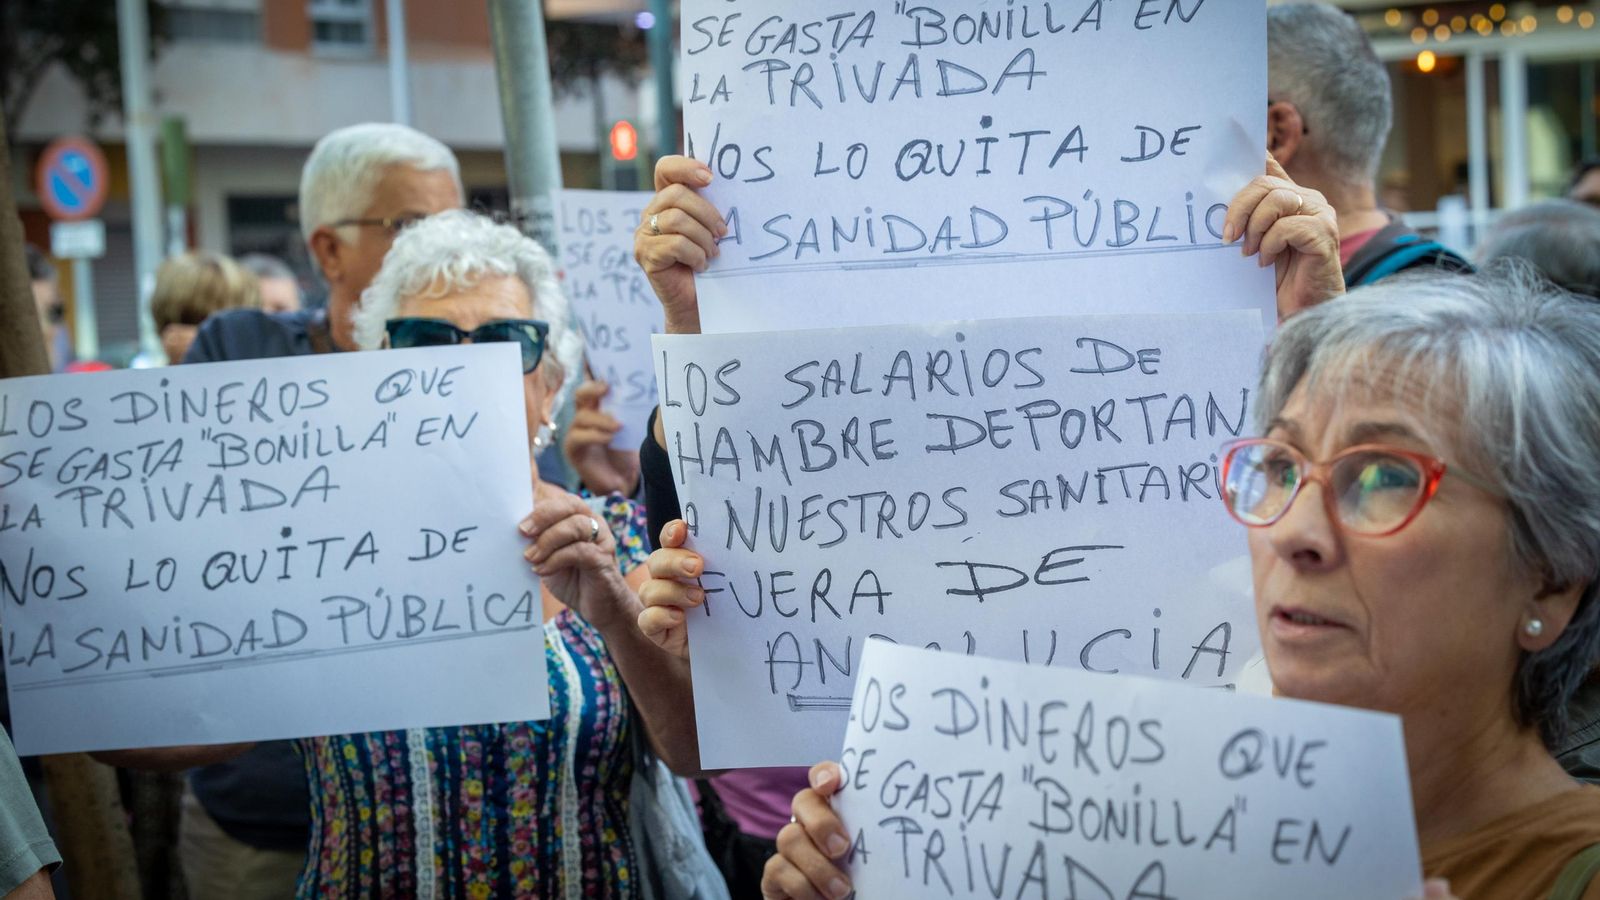 SE GASTA "BONILLA" EN
LA PRIVADA
NOS LO QUITA DE
LA SANIDAD PÚBLIC
LOS DINEROS QUE
SE GASTA "BONILLA" EN
LA PRIVADA
NOS LO QUITA DE
LA SANIDAD PÚBLICA
LOS
SE
LA PR
NOS
LA SA
LOS SALARIOS DE
HAMBRE DEPORTAN
A NUESTROS SANITARI
FUERA DE
ANDALUCIA
LOS DINEROS QUE
SE GASTA "BONILLA" EN
LA PRIVADA